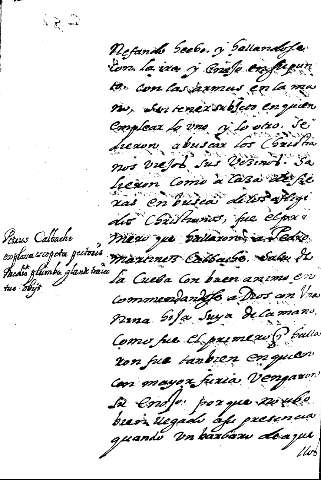 Nefando hecho, y hallandose
con la ira y enojo en su pun
to, con las armas en la ma
no, sin tener subjeto en quien
emplear lo uno, y lo otro. Se
dieron a buscar los Christia
nos viejos sus Vezinos. Sa
lieron como a caza de fie
ras en busca de los afligi
dos Christianos, fue el pri
mero que hallaron, a Pedro
Martinez Calbache. Salio de
la Cueba con buen animo en
commendandose a Dios con Una
Nina hija suya de la mano,
Como fue el primero q halla
ron fue tambien en quien
con mayor furia Vengaron
su Enojo. porque no ubo
bien llegado a su presencia
quando Un barbaro de aque
llos
Petrus Calbache
explosa scopeta pectoris
plumbea glande traiec
tus obijt